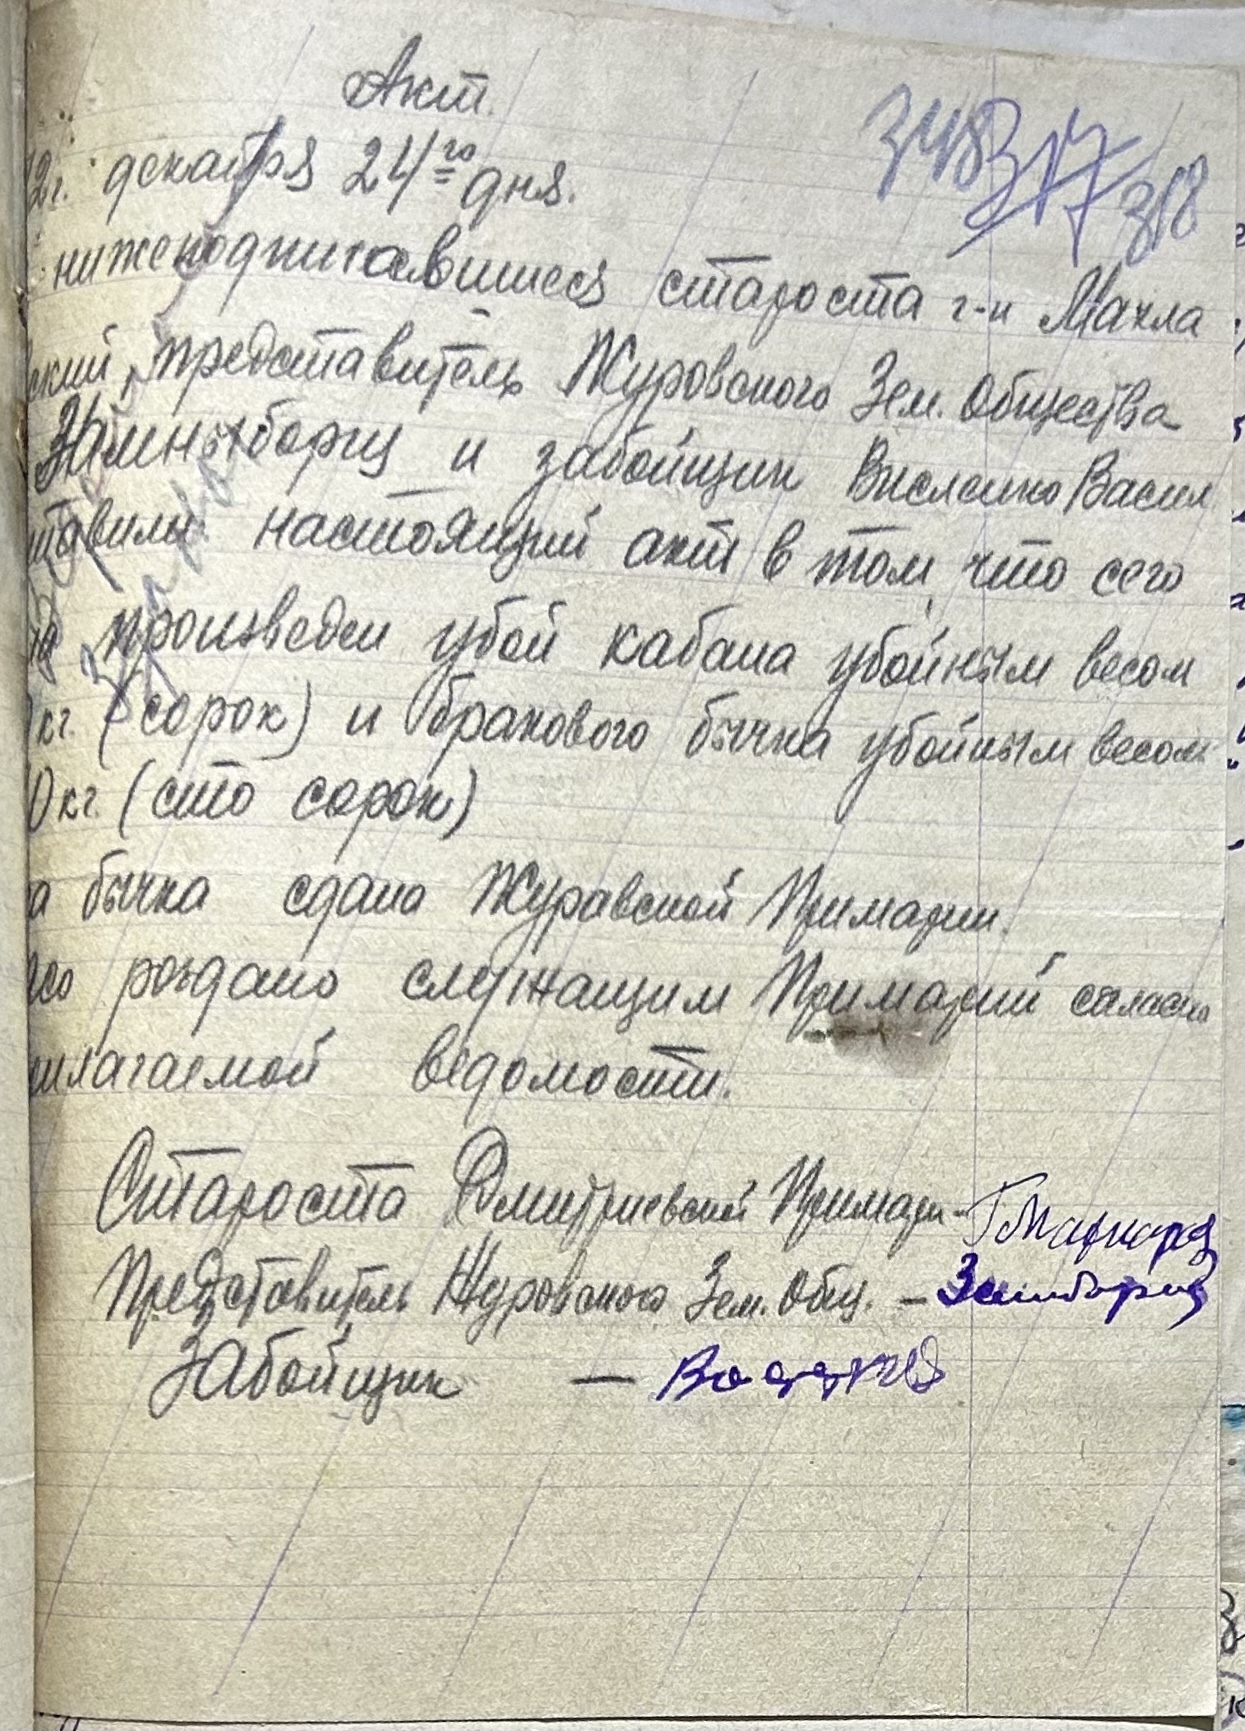 Акт.
348 317 318
2г. декабря 24го дня.
нижеподписавшиеся староста г-н Махла
ский, представитель Журовского Зем. Общества
и забойщик Васил
тавили настоящий акт в том, что сего
произведен убой кабана убойным весом
кг. (сорок) и бракового бычка убойным весом
0 кг. (сто сорок)
а бычка сдана Журавской Примарии.
роздано служащим Примарий согласно
илагаемой ведомости.
Староста Дмитриевской Примари -
Представитель Журовского Зем. Общ. -
Забойщик -